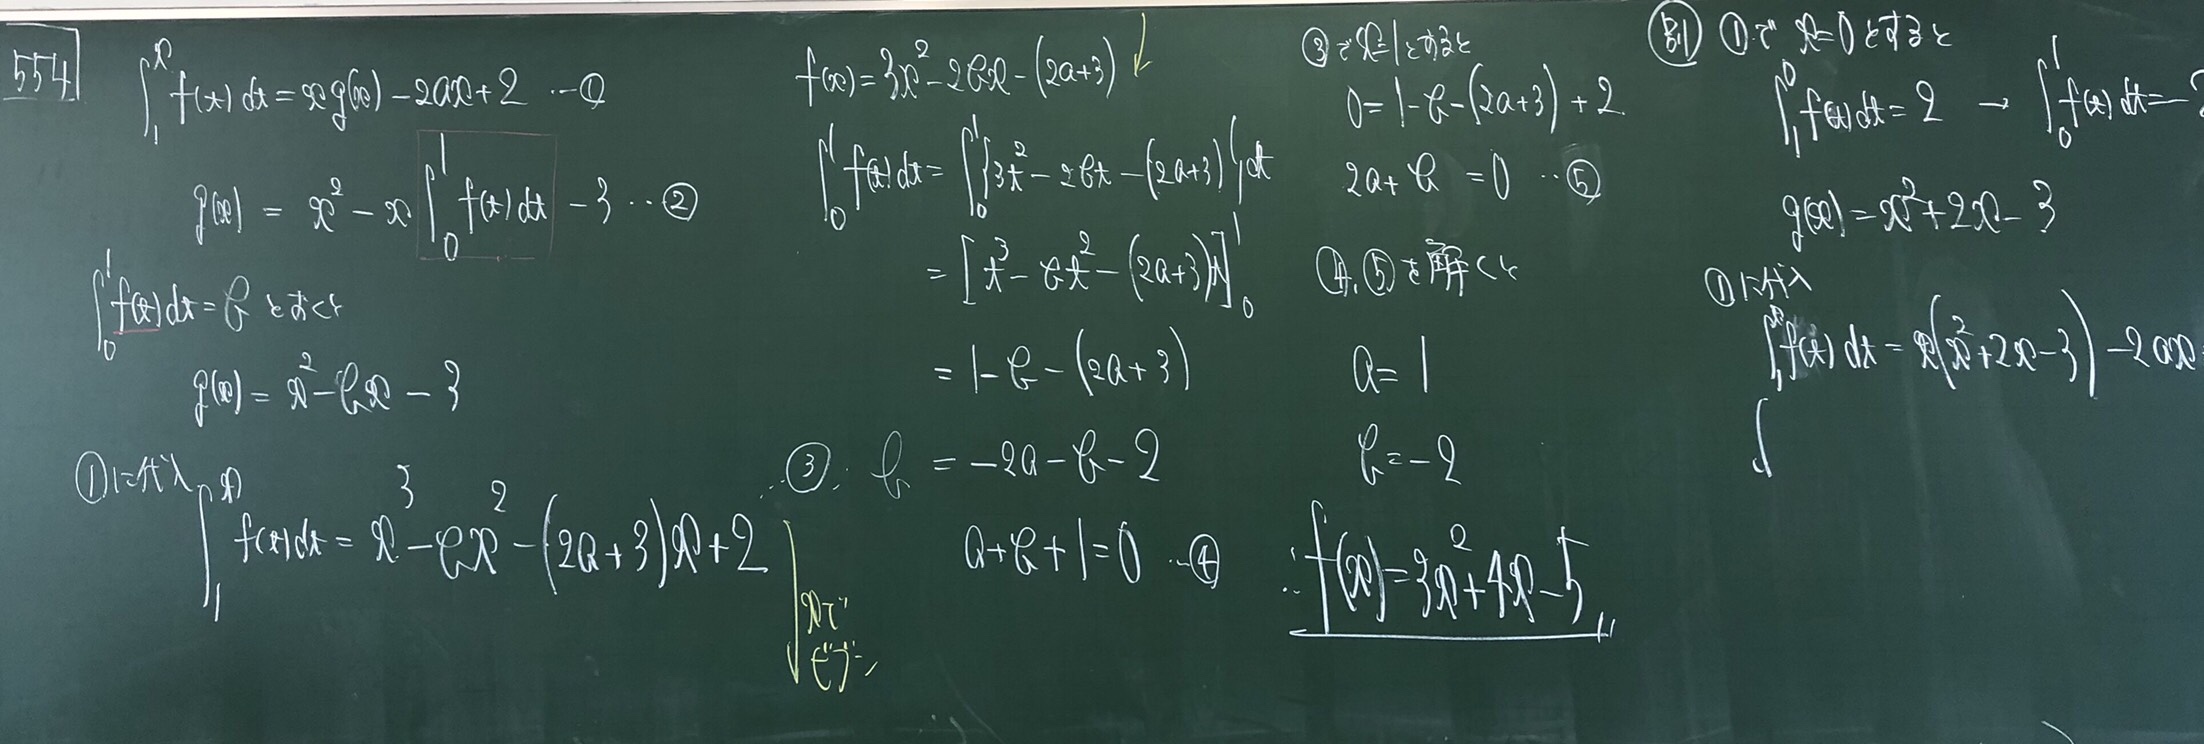 554
∫₁ˣ f(t)dt = xg(x) - 2ax + 2 … ①
g(x) = x² - x ∫₀¹ f(t)dt - 3 … ②
∫₀¹ f(t)dt = b とおくと
g(x) = x² - bx - 3
①に代入
∫₁ˣ f(t)dt = x³ - bx² - (2a+3)x + 2 … ③
xで
ビブン
f(x) = 3x² - 2bx - (2a+3)
∫₀¹ f(t)dt = ∫₀¹ {3t² - 2bt - (2a+3)} dt
= [t³ - bt² - (2a+3)t]₀¹
= 1 - b - (2a+3)
b = -2a - b - 2
a + b + 1 = 0 … ④
③で x=1 とすると
0 = 1 - b - (2a+3) + 2
2a + b = 0 … ⑤
④, ⑤を解くと
a = 1
b = -2
∴ f(x) = 3x² + 4x - 5 〃
別 ①で x=0 とすると
∫₁⁰ f(t)dt = 2 → ∫₀¹ f(t)dt = -2
g(x) = x² + 2x - 3
①に代入
∫₁ˣ f(t)dt = x(x² + 2x - 3) - 2ax
∫